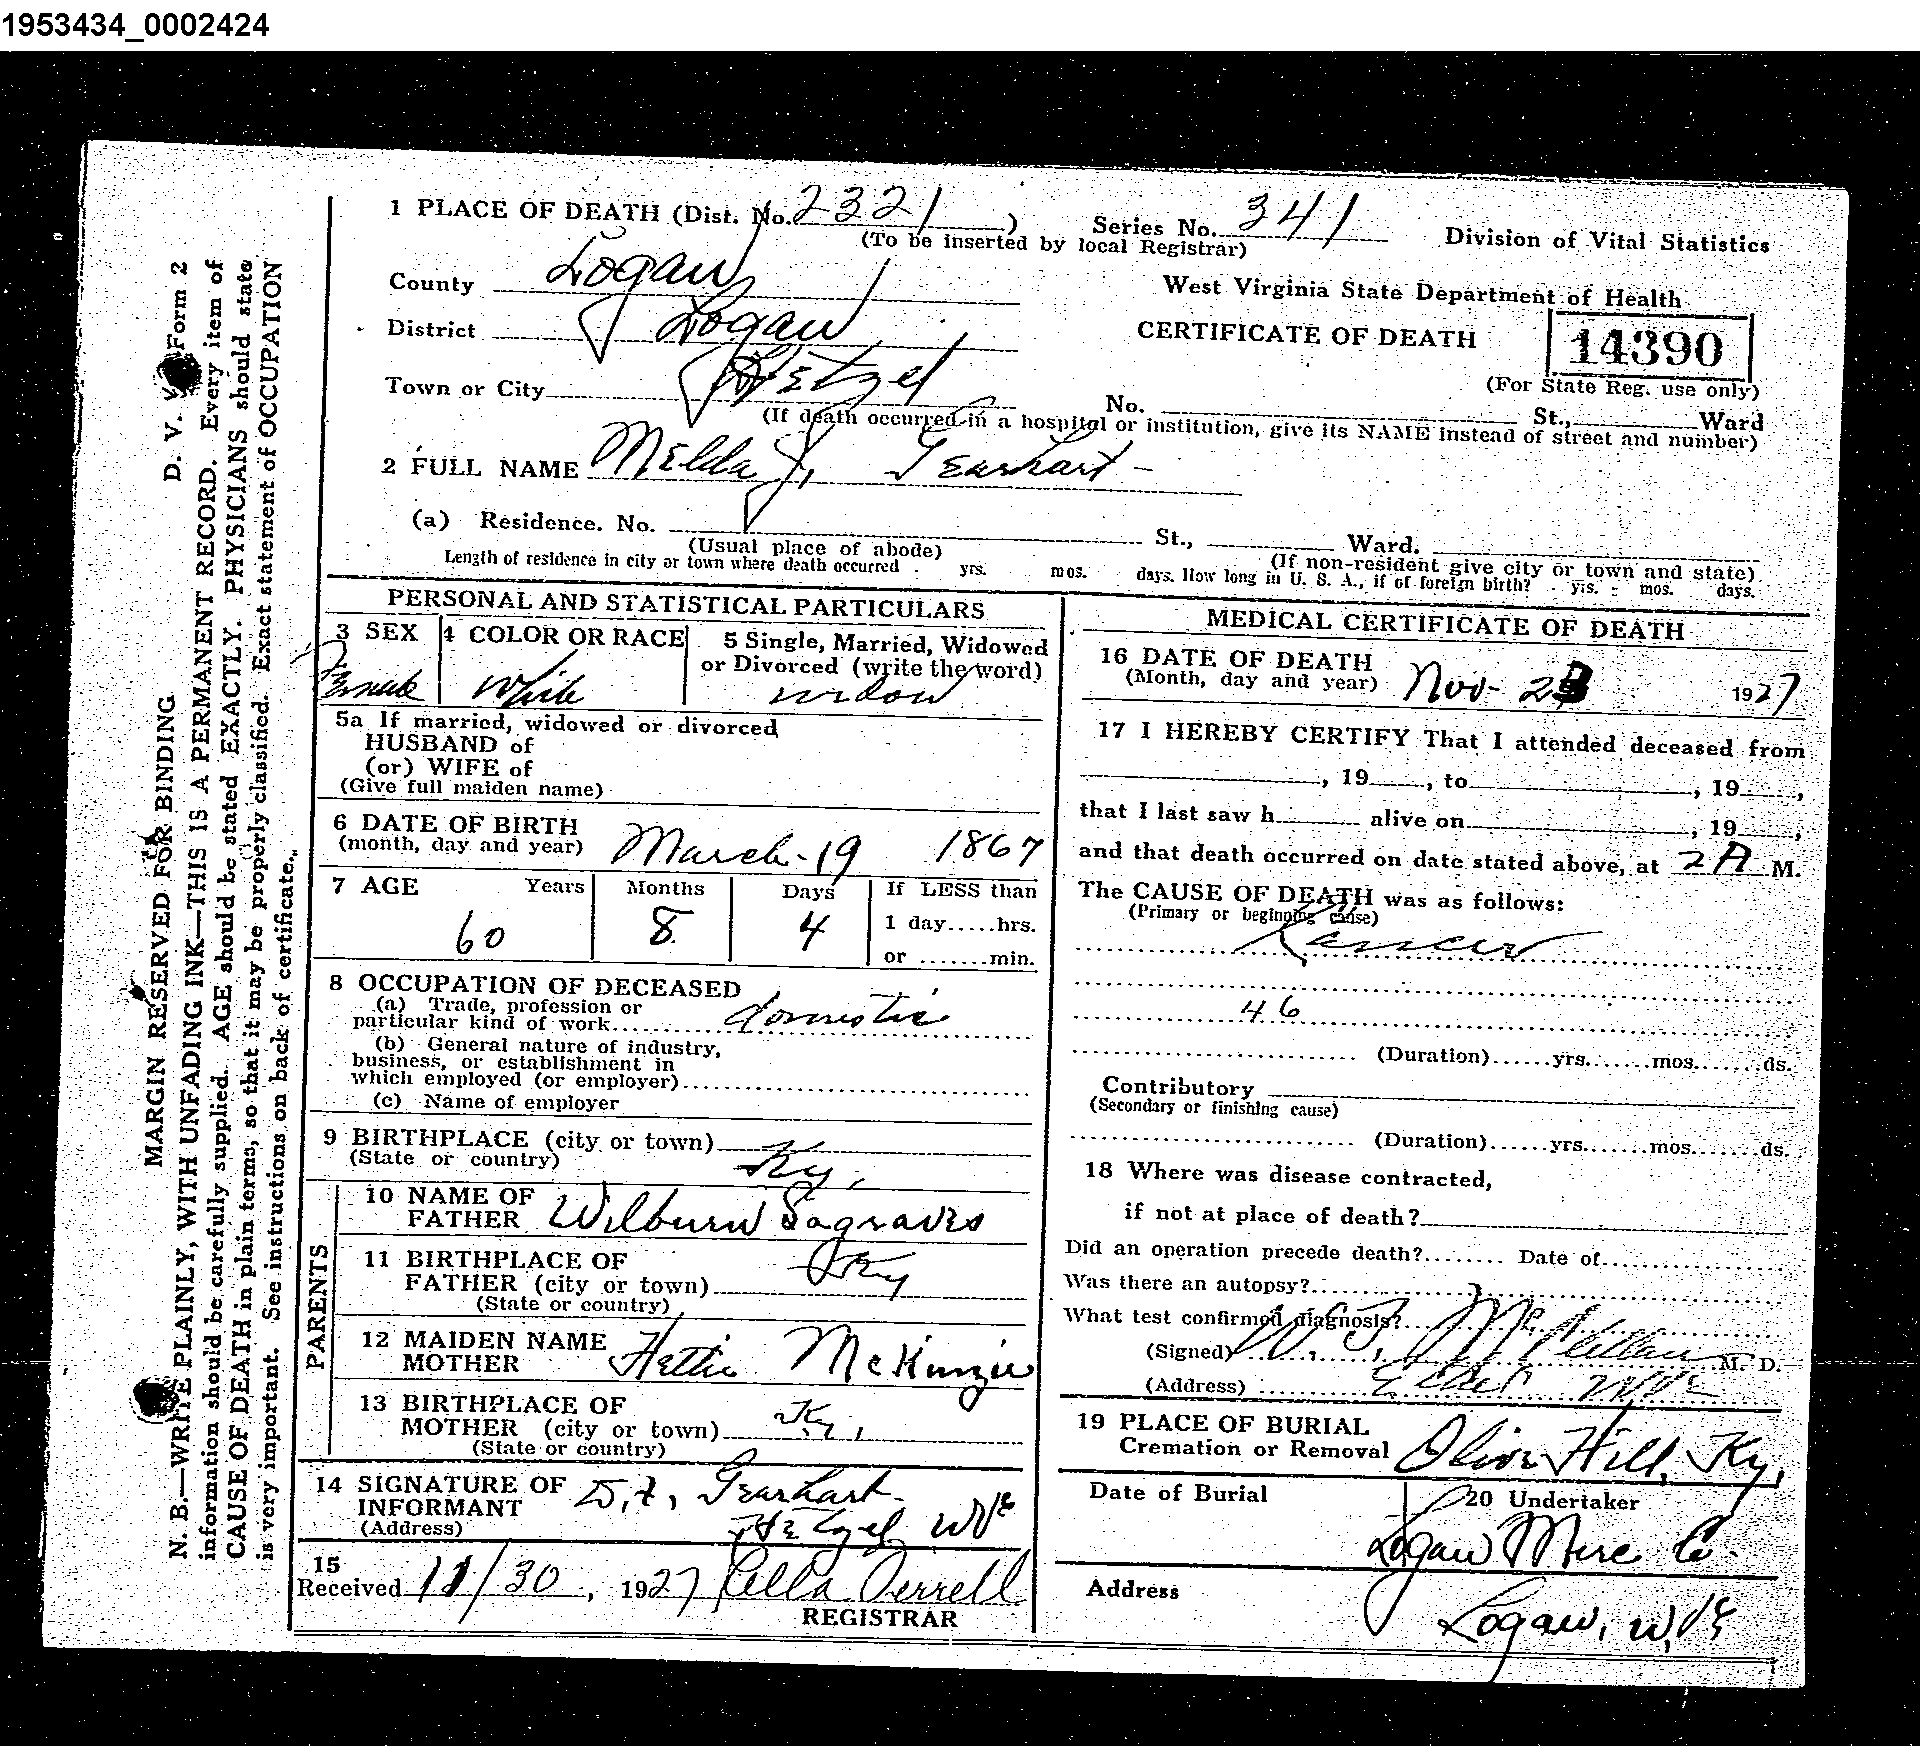 1953434_0002424
1 PLACE OF DEATH (Dist. No. 2321) Series No. 341
(To be inserted by local Registrar)
Division of Vital Statistics
County Logan
West Virginia State Department of Health
District Logan
CERTIFICATE OF DEATH
14390
(For State Reg. use only)
Town or City Hetzel
No. St., Ward
(If death occurred in a hospital or institution, give its NAME instead of street and number)
2 FULL NAME Melda J. Gearhart
(a) Residence. No. St., Ward.
(Usual place of abode) (If non-resident give city or town and state)
Length of residence in city or town where death occurred yrs. mos. days. How long in U. S. A., if of foreign birth? yrs. mos. days.
PERSONAL AND STATISTICAL PARTICULARS
3 SEX 4 COLOR OR RACE 5 Single, Married, Widowed
or Divorced (write the word)
Female White widow
5a If married, widowed or divorced
HUSBAND of
(or) WIFE of
(Give full maiden name)
6 DATE OF BIRTH
(month, day and year) March-19 1867
7 AGE Years Months Days If LESS than
60 8 4 1 day.....hrs.
or .......min.
8 OCCUPATION OF DECEASED
(a) Trade, profession or
particular kind of work domestic
(b) General nature of industry,
business, or establishment in
which employed (or employer)
(c) Name of employer
9 BIRTHPLACE (city or town)
(State or country) Ky.
PARENTS
10 NAME OF
FATHER Wilburn Sagraves
11 BIRTHPLACE OF
FATHER (city or town) Ky
(State or country)
12 MAIDEN NAME
MOTHER Hettie McKinzie
13 BIRTHPLACE OF
MOTHER (city or town) Ky,
(State or country)
14 SIGNATURE OF
INFORMANT Gearhart
(Address) Hetzel WVa
15
Received 11/30, 1927 Cella Perrell
REGISTRAR
MEDICAL CERTIFICATE OF DEATH
16 DATE OF DEATH
(Month, day and year) Nov- 23 1927
17 I HEREBY CERTIFY That I attended deceased from
, 19 , to , 19 ,
that I last saw h alive on , 19 ,
and that death occurred on date stated above, at 2A M.
The CAUSE OF DEATH was as follows:
(Primary or beginning cause)
Cancer
46
(Duration)......yrs.......mos.......ds.
Contributory
(Secondary or finishing cause)
(Duration)......yrs.......mos.......ds.
18 Where was disease contracted,
if not at place of death?
Did an operation precede death?........ Date of
Was there an autopsy?
What test confirmed diagnosis?
(Signed) McClellan M. D.
(Address)
19 PLACE OF BURIAL
Cremation or Removal Olive Hill, Ky,
Date of Burial 20 Undertaker
Logan Merc Co.
Address
Logan, W, Va
MARGIN RESERVED FOR BINDING D. V. Form 2
N. B.—WRITE PLAINLY, WITH UNFADING INK—THIS IS A PERMANENT RECORD. Every item of
information should be carefully supplied. AGE should be stated EXACTLY. PHYSICIANS should state
CAUSE OF DEATH in plain terms, so that it may be properly classified. Exact statement of OCCUPATION
is very important. See instructions on back of certificate.